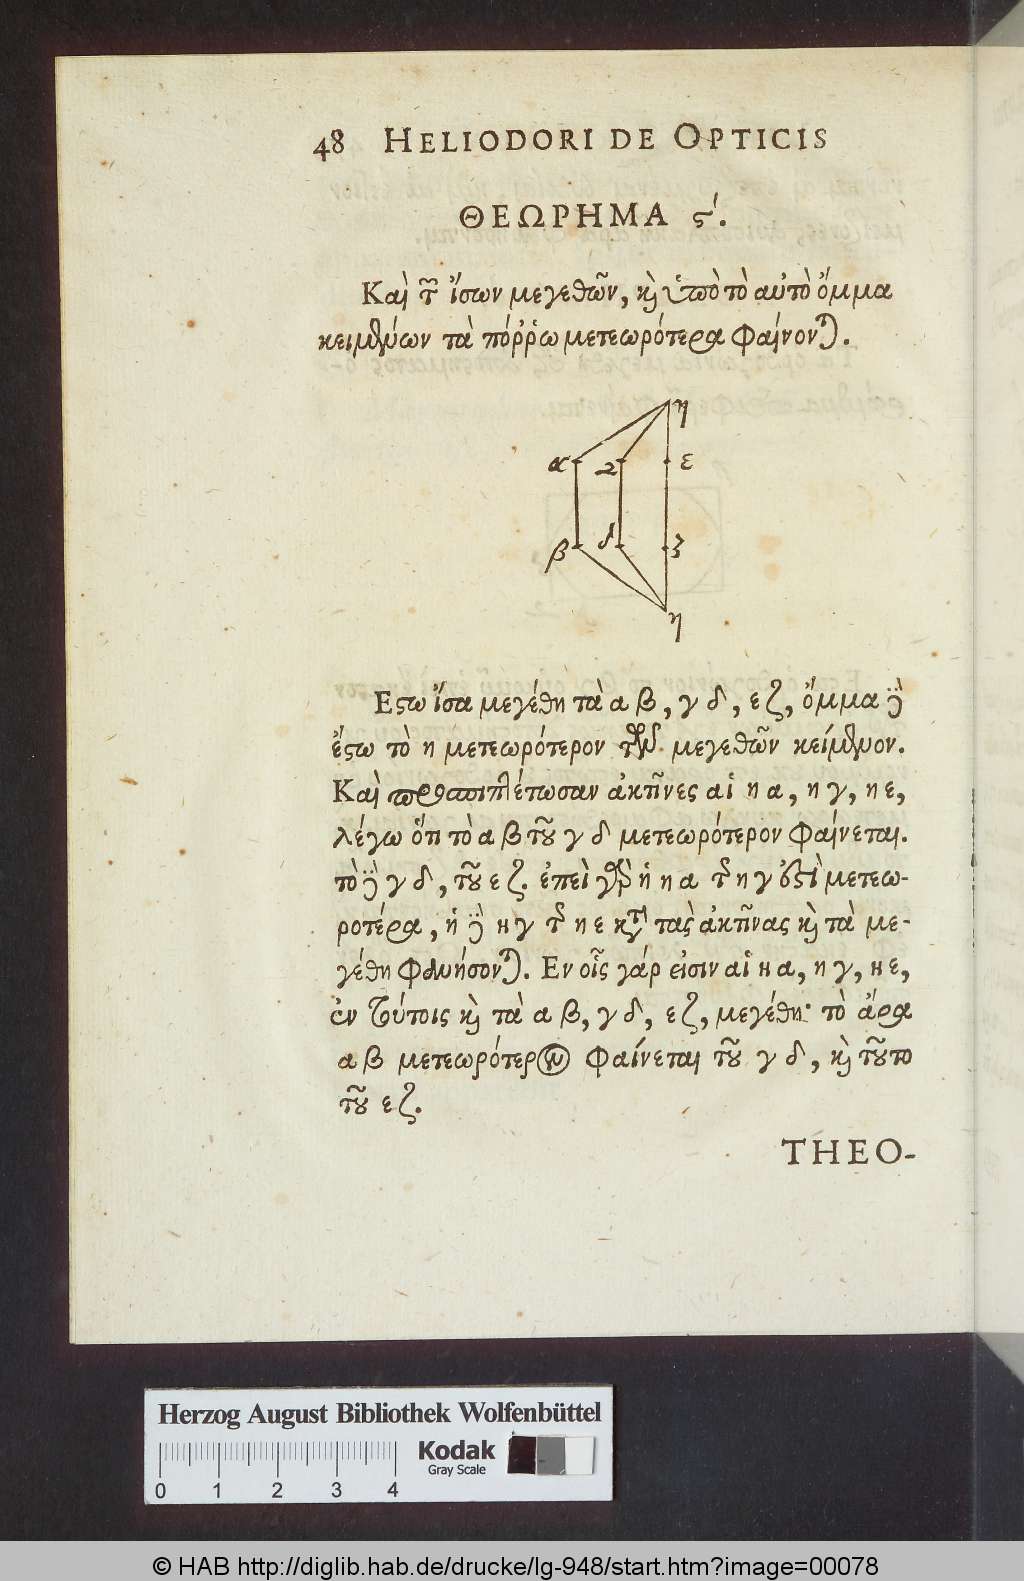 48 HELIODORI DE OPTICIS
ΘΕΩΡΗΜΑ ϛʹ.
Καὶ τῶν ἴσων μεγεθῶν, καὶ ὑπὸ τὸ αὐτὸ ὄμμα
κειμένων τὰ πόῤῥω μετεωρότερα φαίνονται.
η
α γ ε
β δ ζ
η
Εϛω ἴσα μεγέθη τὰ α β, γ δ, ε ζ, ὄμμα δὲ
ἔϛω τὸ η μετεωρότερον τῶν μεγεθῶν κείμενον.
Καὶ προσπιπλέτωσαν ἀκτῖνες αἱ η α, η γ, η ε,
λέγω ὅτι τὸ α β τοῦ γ δ μετεωρότερον φαίνεται.
τὸ δὲ γ δ, τοῦ ε ζ. ἐπεὶ γὰρ ἡ η α τῆς η γ ἐϛὶ μετεω-
ροτέρα, ἡ δὲ η γ τῆς η ε κατὰ τὰς ἀκτῖνας καὶ τὰ με-
γέθη φανήσονται. Εν οἷς γάρ εἰσιν αἱ η α, η γ, η ε,
ἐν τούτοις καὶ τὰ α β, γ δ, ε ζ, μεγέθη· τὸ ἄρα
α β μετεωρότερον φαίνεται τοῦ γ δ, καὶ τοῦτο
τοῦ ε ζ.
THEO-
Herzog August Bibliothek Wolfenbüttel
Kodak
Gray Scale
0 1 2 3 4
© HAB http://diglib.hab.de/drucke/lg-948/start.htm?image=00078